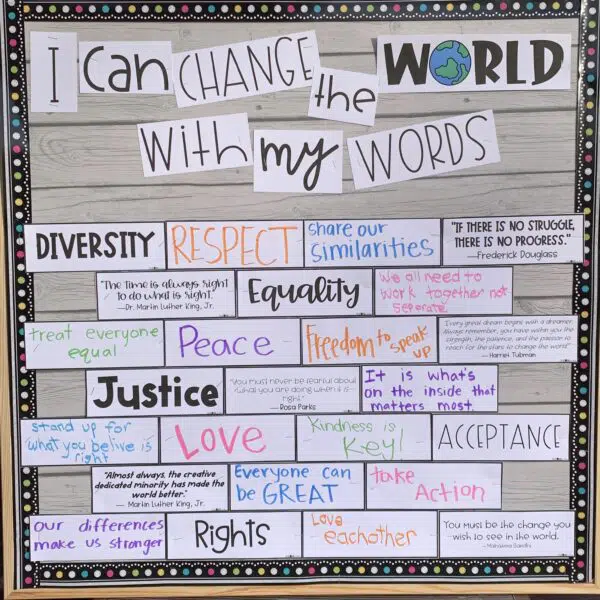 I Can CHANGE the WORLD
With my WORDS
DIVERSITY
RESPECT
share our
similarities
"IF THERE IS NO STRUGGLE,
THERE IS NO PROGRESS."
—Frederick Douglass
"The time is always right
to do what is right."
—Dr. Martin Luther King, Jr.
Equality
We all need to
work together not
separate
treat everyone
equal
Peace
Freedom to speak
up
Every great dream begins with a dreamer.
Always remember, you have within you the
strength, the patience, and the passion to
reach for the stars to change the world."
— Harriet Tubman
Justice
"You must never be fearful about
what you are doing when it is
right."
— Rosa Parks
It is what's
on the inside that
matters most.
stand up for
what you belive is
right
Love
Kindness is
key!
ACCEPTANCE
"Almost always, the creative
dedicated minority has made the
world better."
— Martin Luther King, Jr.
Everyone can
be GREAT
take
Action
our differences
make us stronger
Rights
Love
eachother
You must be the change you
wish to see in the world.
- Mahatma Gandhi